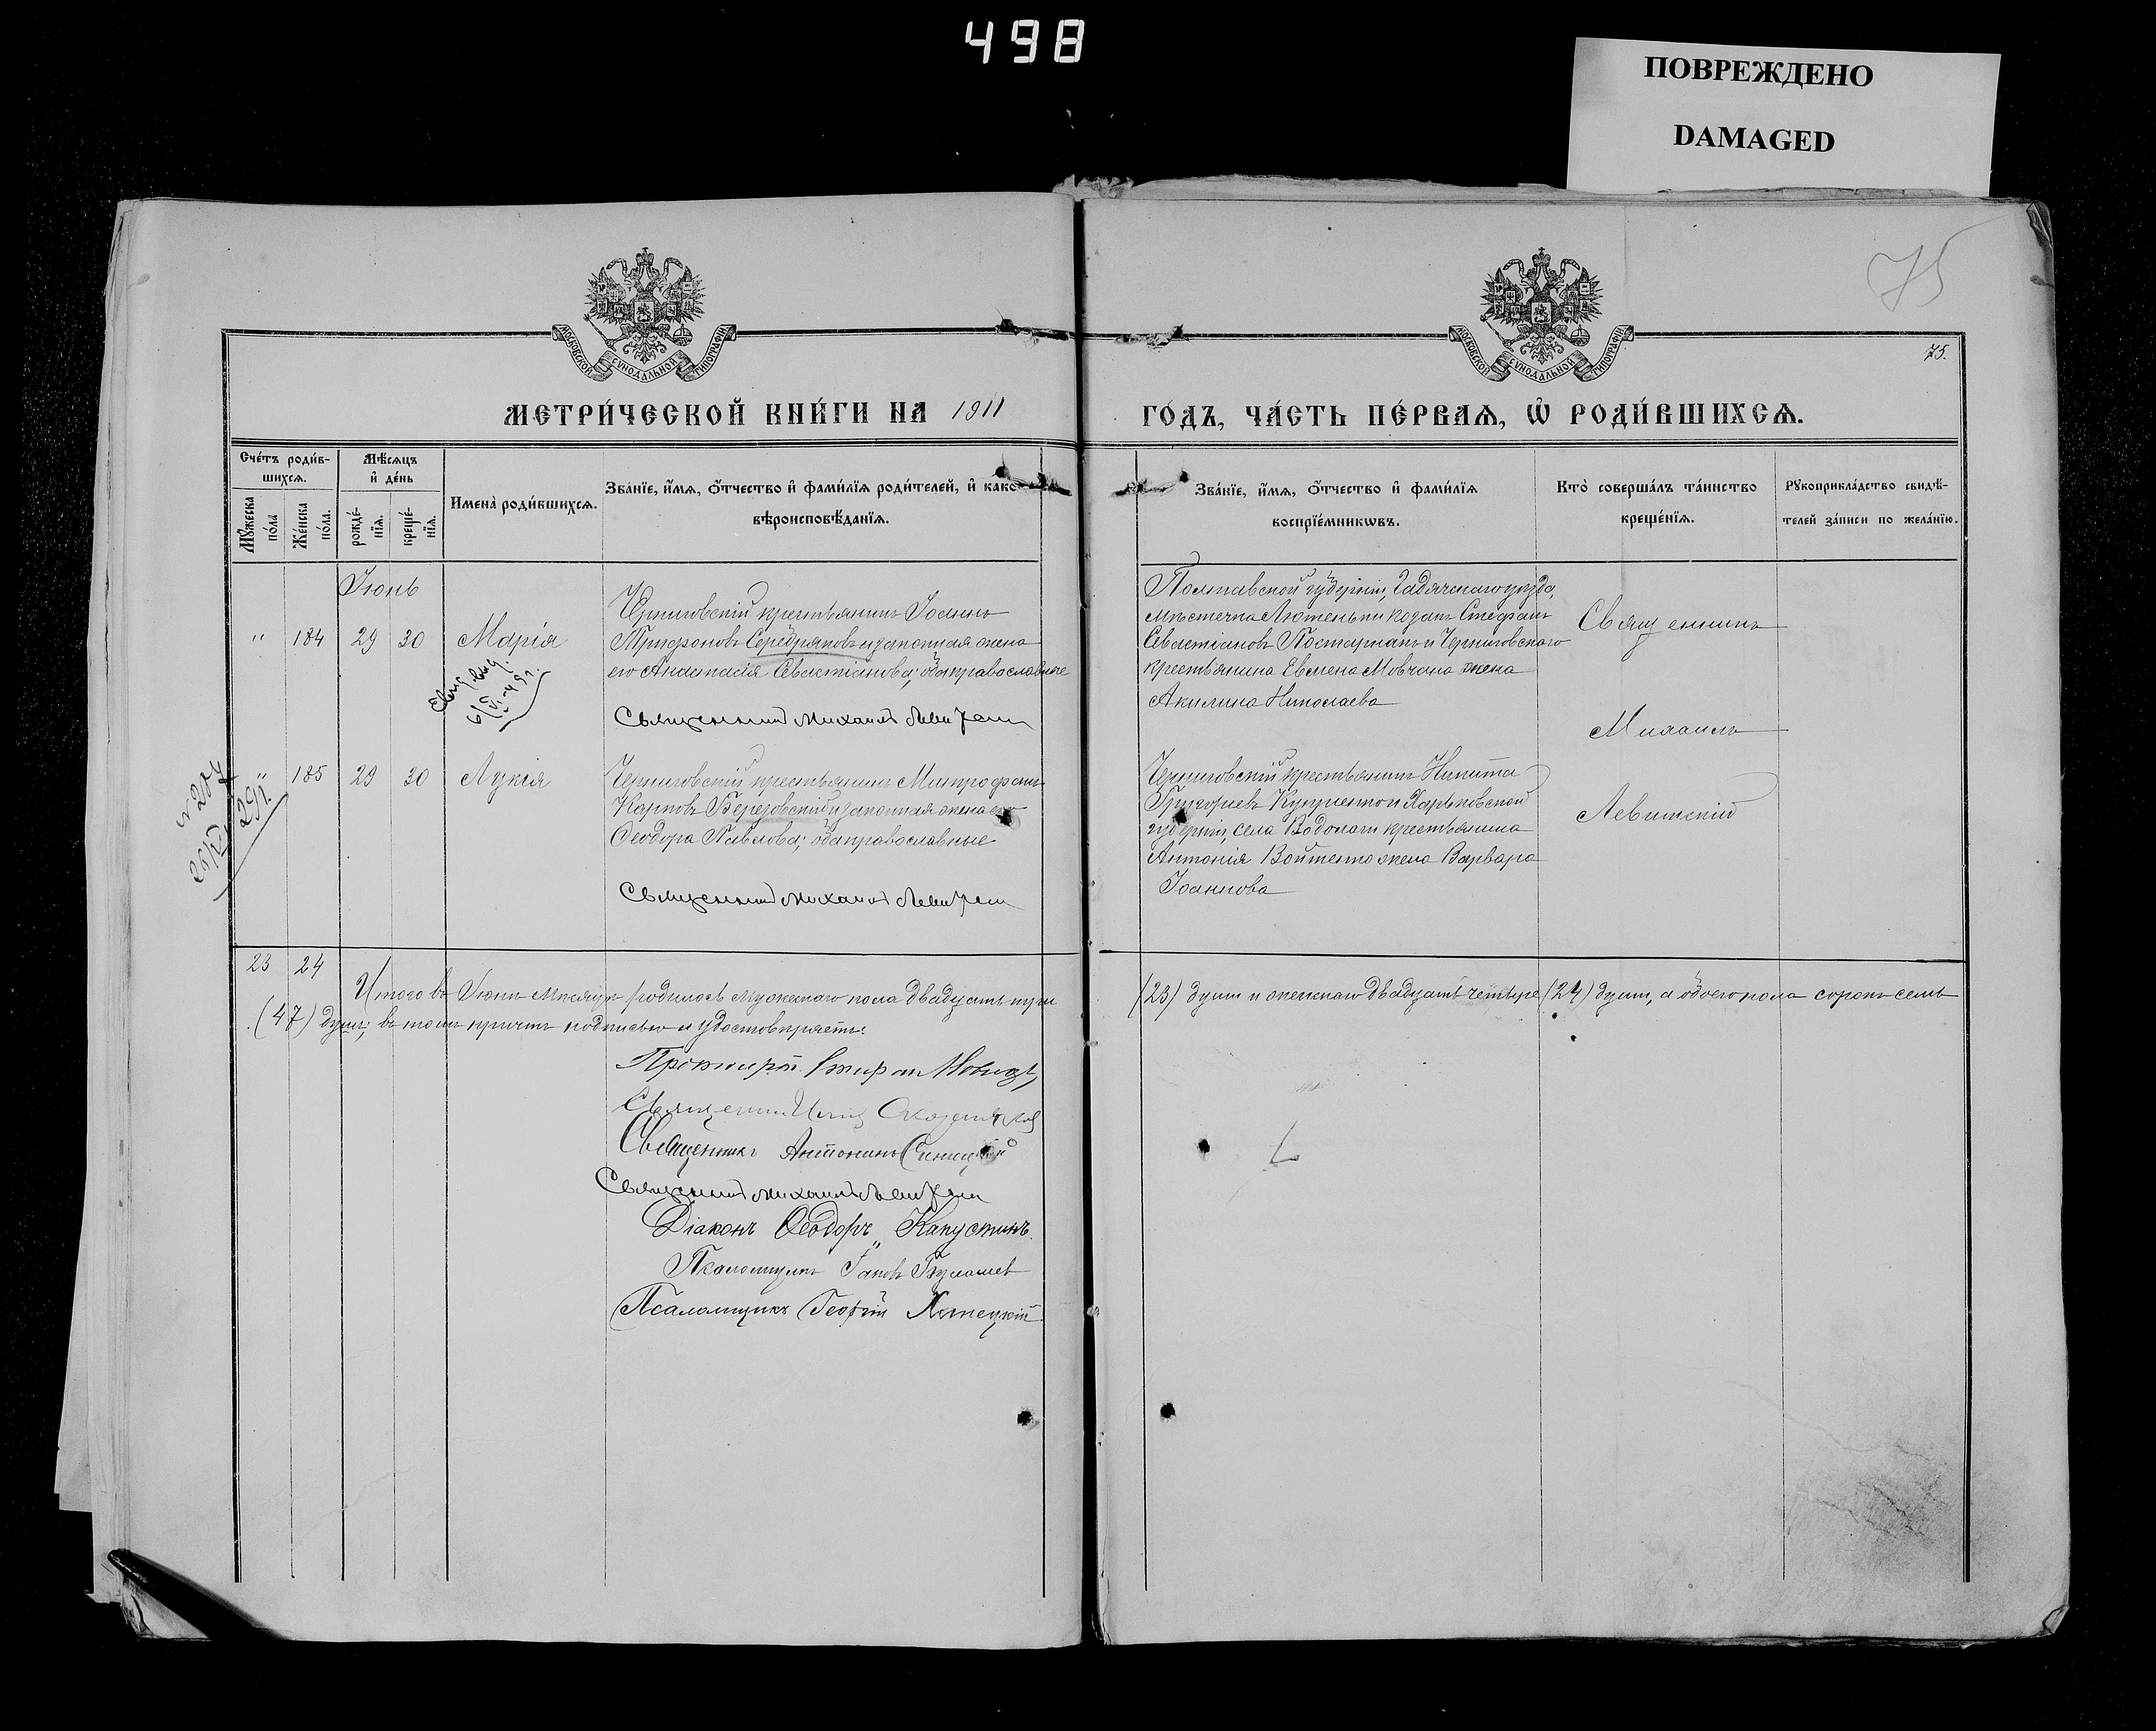 498
ПОВРЕЖДЕНО
DAMAGED
75
МОСКОВСКОЙ СѴНОДАЛЬНОЙ ТИПОГРАФІИ
МОСКОВСКОЙ СѴНОДАЛЬНОЙ ТИПОГРАФІИ
75.
МЕТРИ́ЧЕСКОЙ КНИ́ГИ НА 1911
ГО́ДЪ, ЧА́СТЬ ПЕ́РВАѦ, Ѡ҆ РОДИ́ВШИХСѦ.
Сче́тъ роди́в-
шихсѧ.
Мꙋ́жеска
по́ла
Же́нска
по́ла.
Мѣ́сѧцъ
и҆ де́нь
рожде́-
нїѧ.
креще́-
нїѧ.
Имена̀ роди́вшихсѧ.
Зва́нїе, и҆́мѧ, ѻ҆́тчество и҆ фами́лїѧ роди́телей, и҆ како-
вѣроисповѣ́данїѧ.
Зва́нїе, и҆́мѧ, ѻ҆́тчество и҆ фами́лїѧ
воспрїе́мникѡвъ.
Кто̀ соверша́лъ та́инство
креще́нїѧ.
Рꙋкоприкла́дство свидѣ́-
телей за́писи по жела́нїю.
Іюнь
" 184 29 30 Марія
Черниговскій крестьянинъ Іоаннъ
Трифоновъ Серебряковъ и законная жена
его Анастасія Севастіанова; оба православные
Священникъ Михаилъ Левитскій
Полтавской губерніи, Гадячскаго уѣзда,
мѣстечка Лютеньки козакъ Стефанъ
Севастіановъ и Черниговскаго
крестьянина Евмена Мовчана жена
Акилина Николаева
Священникъ
Михаилъ
Левитскій
" 185 29 30 Лукія
Черниговскій крестьянинъ Митрофанъ
Карповъ Березовскій и законная жена его
Ѳеодора Павлова; оба православные
Священникъ Михаилъ Левитскій
Черниговскій крестьянинъ Никита
Григорьевъ и Харьковской
губерніи, села Водолаги крестьянина
Антонія Войтенко жена Варвара
Іоаннова
23 24
Итого въ Іюнѣ мѣсяцѣ родилось мужескаго пола двадцать три
(23) душъ и женскаго двадцать четыре (24) душъ, а обоего пола сорокъ семь
(47) душъ; въ томъ причтъ подписью и удостовѣряетъ:
Протоіерей
Священникъ
Священникъ Антонинъ Синицкій
Священникъ Михаилъ Левитскій
Діаконъ Ѳеодоръ Капустинъ.
Псаломщикъ Іаковъ
Псаломщикъ Георгій